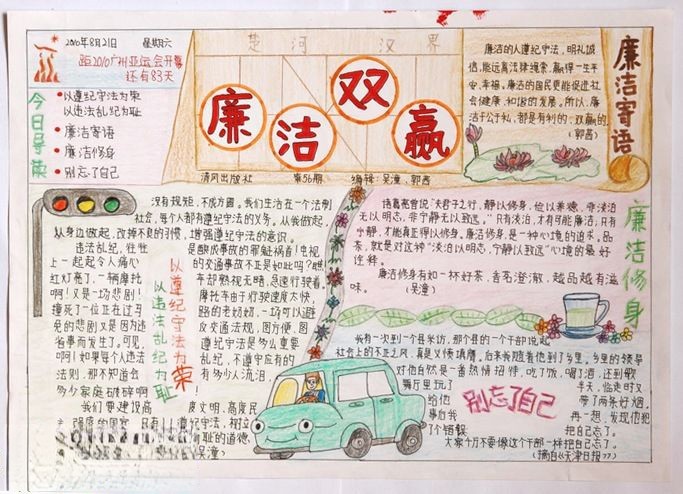 2010年8月21日 星期六
距2010广州亚运会开幕
还有83天
今日导读
以遵纪守法为荣
以违法乱纪为耻
廉洁寄语
廉洁修身
别忘了自己
楚河 汉界
廉洁双赢
清风出版社 第56期 编辑:吴潼、郭茜
廉洁的人遵纪守法,明礼诚
信,能远离法律绳索,赢得一生平
安,幸福。廉洁的国民更能促进社
会健康、和谐的发展。所以,廉
洁于公于私,都是有利的、双赢的。
(郭茜)
廉洁寄语
没有规矩,不成方圆。我们生活在一个法制
社会,每个人都有遵纪守法的义务。从我做起,
从身边做起,改掉不良的习惯,增强遵纪守法的意识。
违法乱纪,往往是酿成事故的罪魁祸首!电视
上一起起令人痛心的交通事故不正是如此吗?瞧!
红灯亮了,一辆摩托车却熟视无睹,急速行驶着,
啊!又是一场悲剧!摩托车由于行驶速度太快,
撞死了一位正在过马路的老奶奶,一场可以避
免的悲剧又是因为违反交通法规,图方便,图
省事而发生了。可见,遵纪守法是多么重要
啊!如果每个人违法乱纪,不遵守应有的
法则,那不知道会有多少人流泪,
多少家庭破碎啊!
我们要建设高度文明,高度民
主、强盛的国家,
守法,树立
耻的道德
吴潼)
以遵纪守法为荣
以违法乱纪为耻
诸葛亮曾说“夫君子之行,静以修身,俭以养德,非淡泊
无以明志,非宁静无以致远。”只有淡泊,才有可能廉洁;只有
宁静,才能真正得以修身。廉洁修身,是一种心境的追求。品
茶,就是对这种“淡泊以明志,宁静以致远”心境的最好
诠释。
廉洁修身有如一杯好茶,香茗澄澈,越品越有滋
味。(吴潼)
廉洁修身
我有一次到一个县采访,那个县的一个干部说起
社会上的不正之风,真是义愤填膺。后来我随着他到了乡里。乡里的领导
对他自然是一番热情招待,吃了饭,喝了酒,还到歌
舞厅里玩了半天,临走时又
给他带了两条好烟。
事后我再一想,发现他犯
了个错误 把自己忘了。
大家千万不要像这个干部一样把自己忘了。
(摘自《天津日报》)
别忘了自己